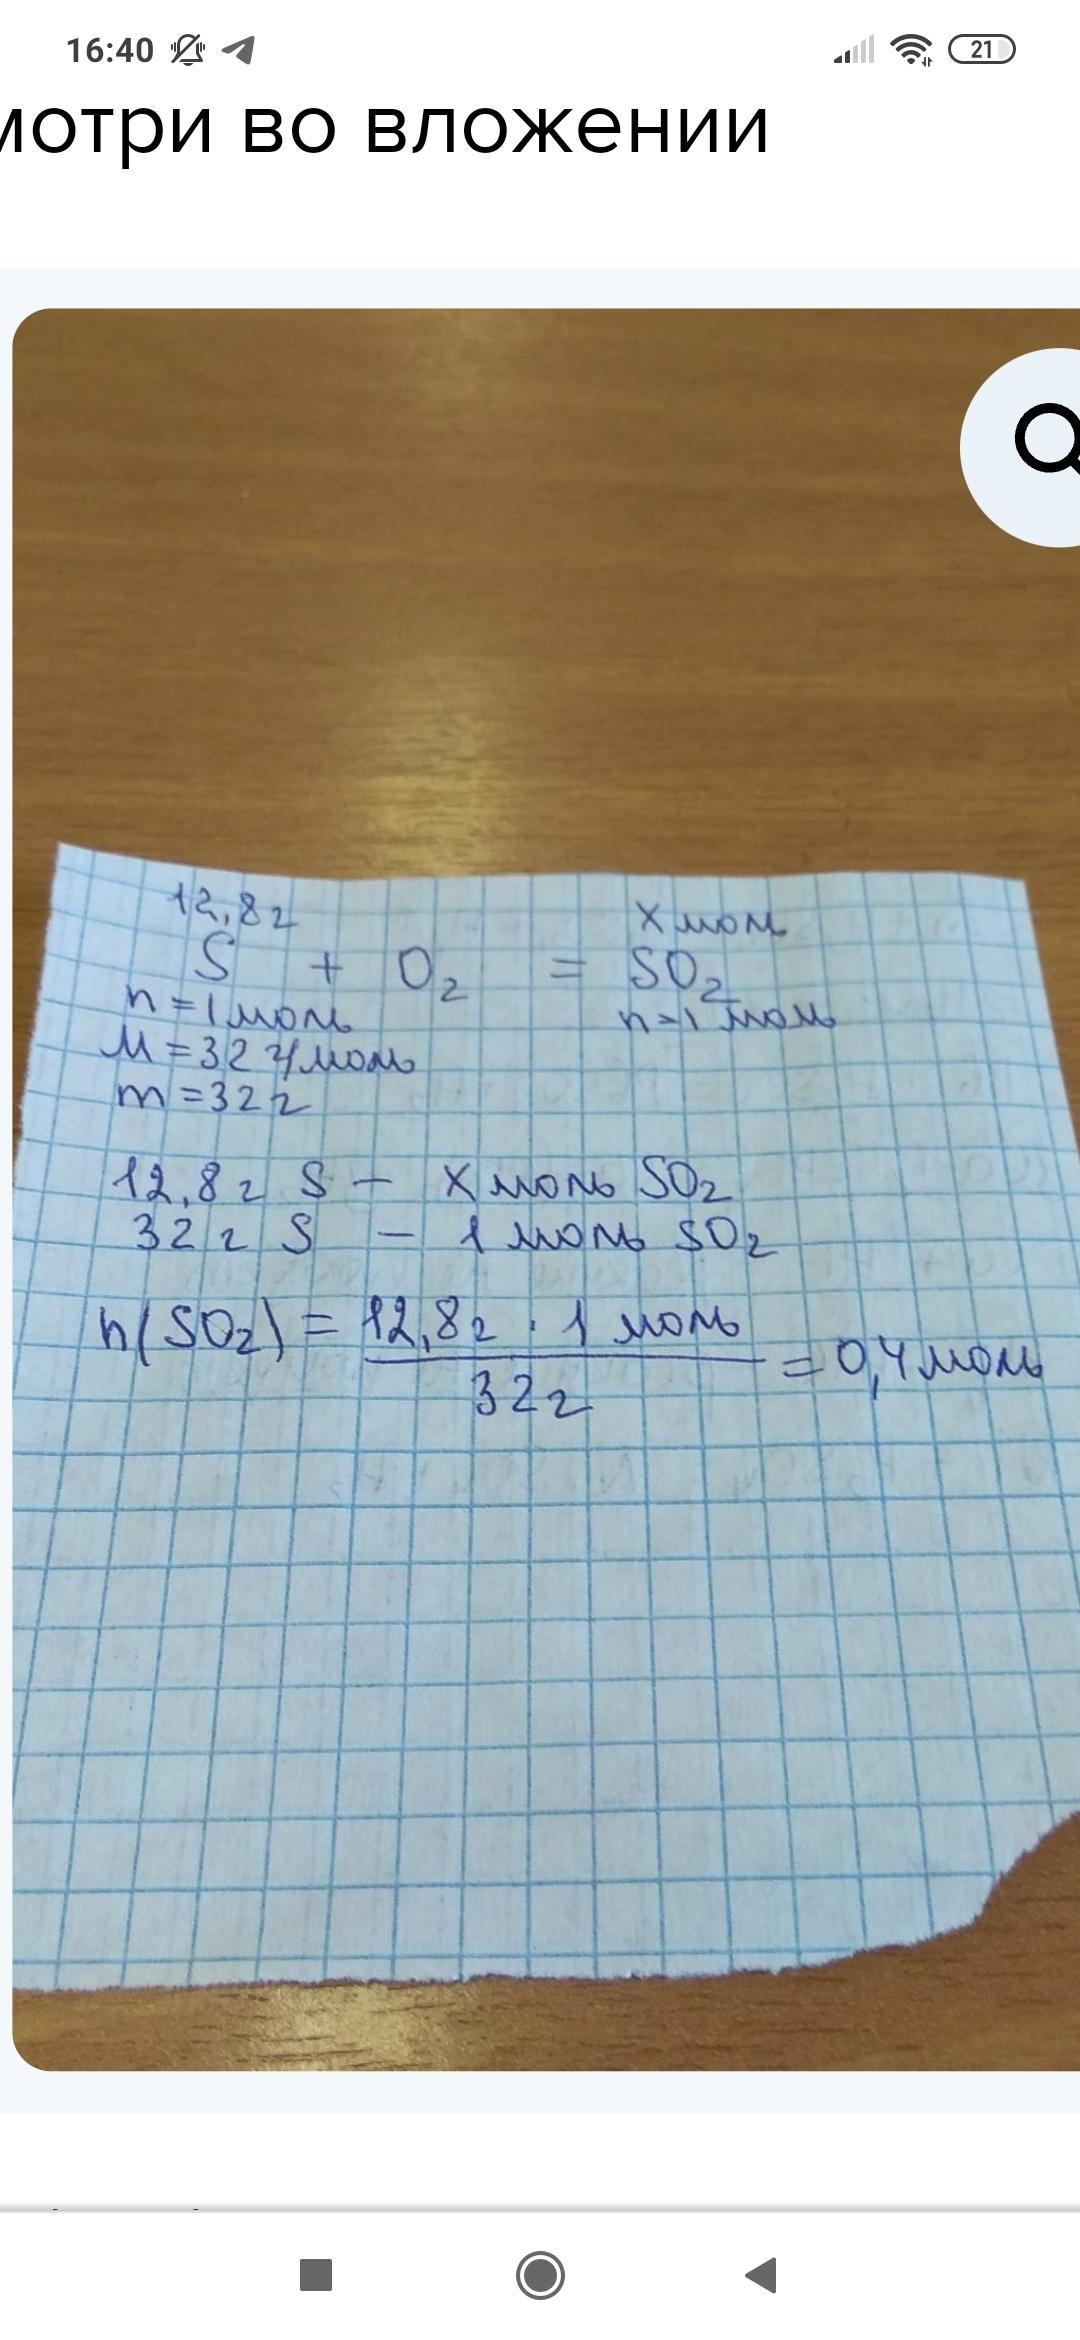 16:40
21
мотри во вложении
12,8г х моль
S + O₂ = SO₂
n=1моль n=1 моль
M=32 г/моль
m=32г
12,8г S – х моль SO₂
32г S – 1 моль SO₂
n(SO₂) = 12,8г · 1 моль
= 0,4моль
32г